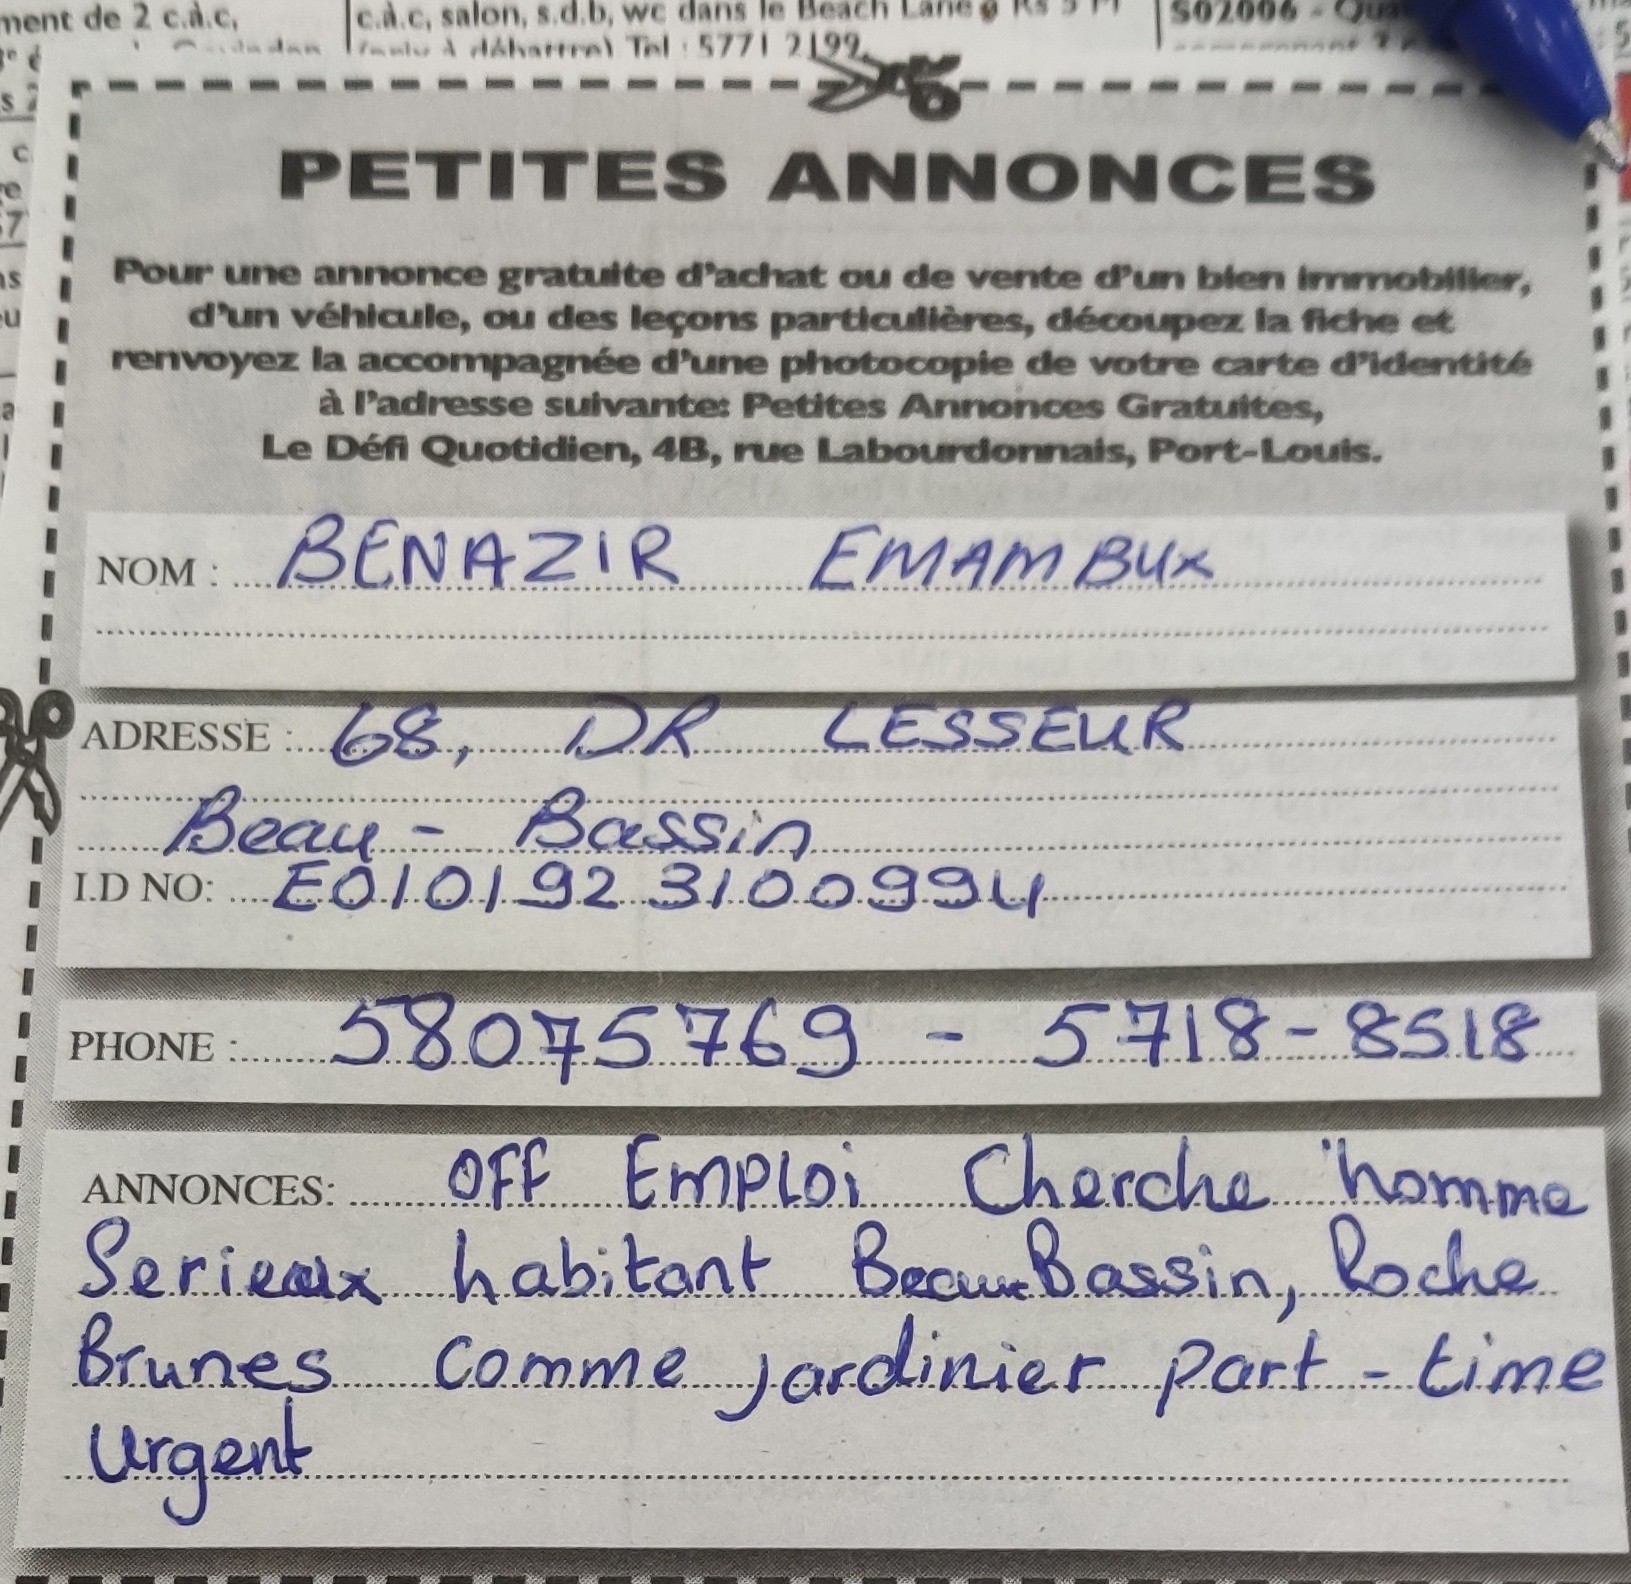 ment de 2 c.à.c,
c.à.c, salon, s.d.b, wc dans le Beach Lane
(entr à débattre) Tel : 5771 2199.
S02006 - Qua
PETITES ANNONCES
Pour une annonce gratuite d'achat ou de vente d'un bien immobilier,
d'un véhicule, ou des leçons particulières, découpez la fiche et
renvoyez la accompagnée d'une photocopie de votre carte d'identité
à l'adresse suivante: Petites Annonces Gratuites,
Le Défi Quotidien, 4B, rue Labourdonnais, Port-Louis.
NOM : BENAZIR EMAMBUx
ADRESSE : 68, DR LESSEUR
Beau - Bassin
I.D NO: E0101923100994
PHONE : 58075769 - 5718-8518
ANNONCES: OFF Emploi Cherche homme
Serieux habitant Beau Bassin, Roche
Brunes comme jardinier part - time
urgent